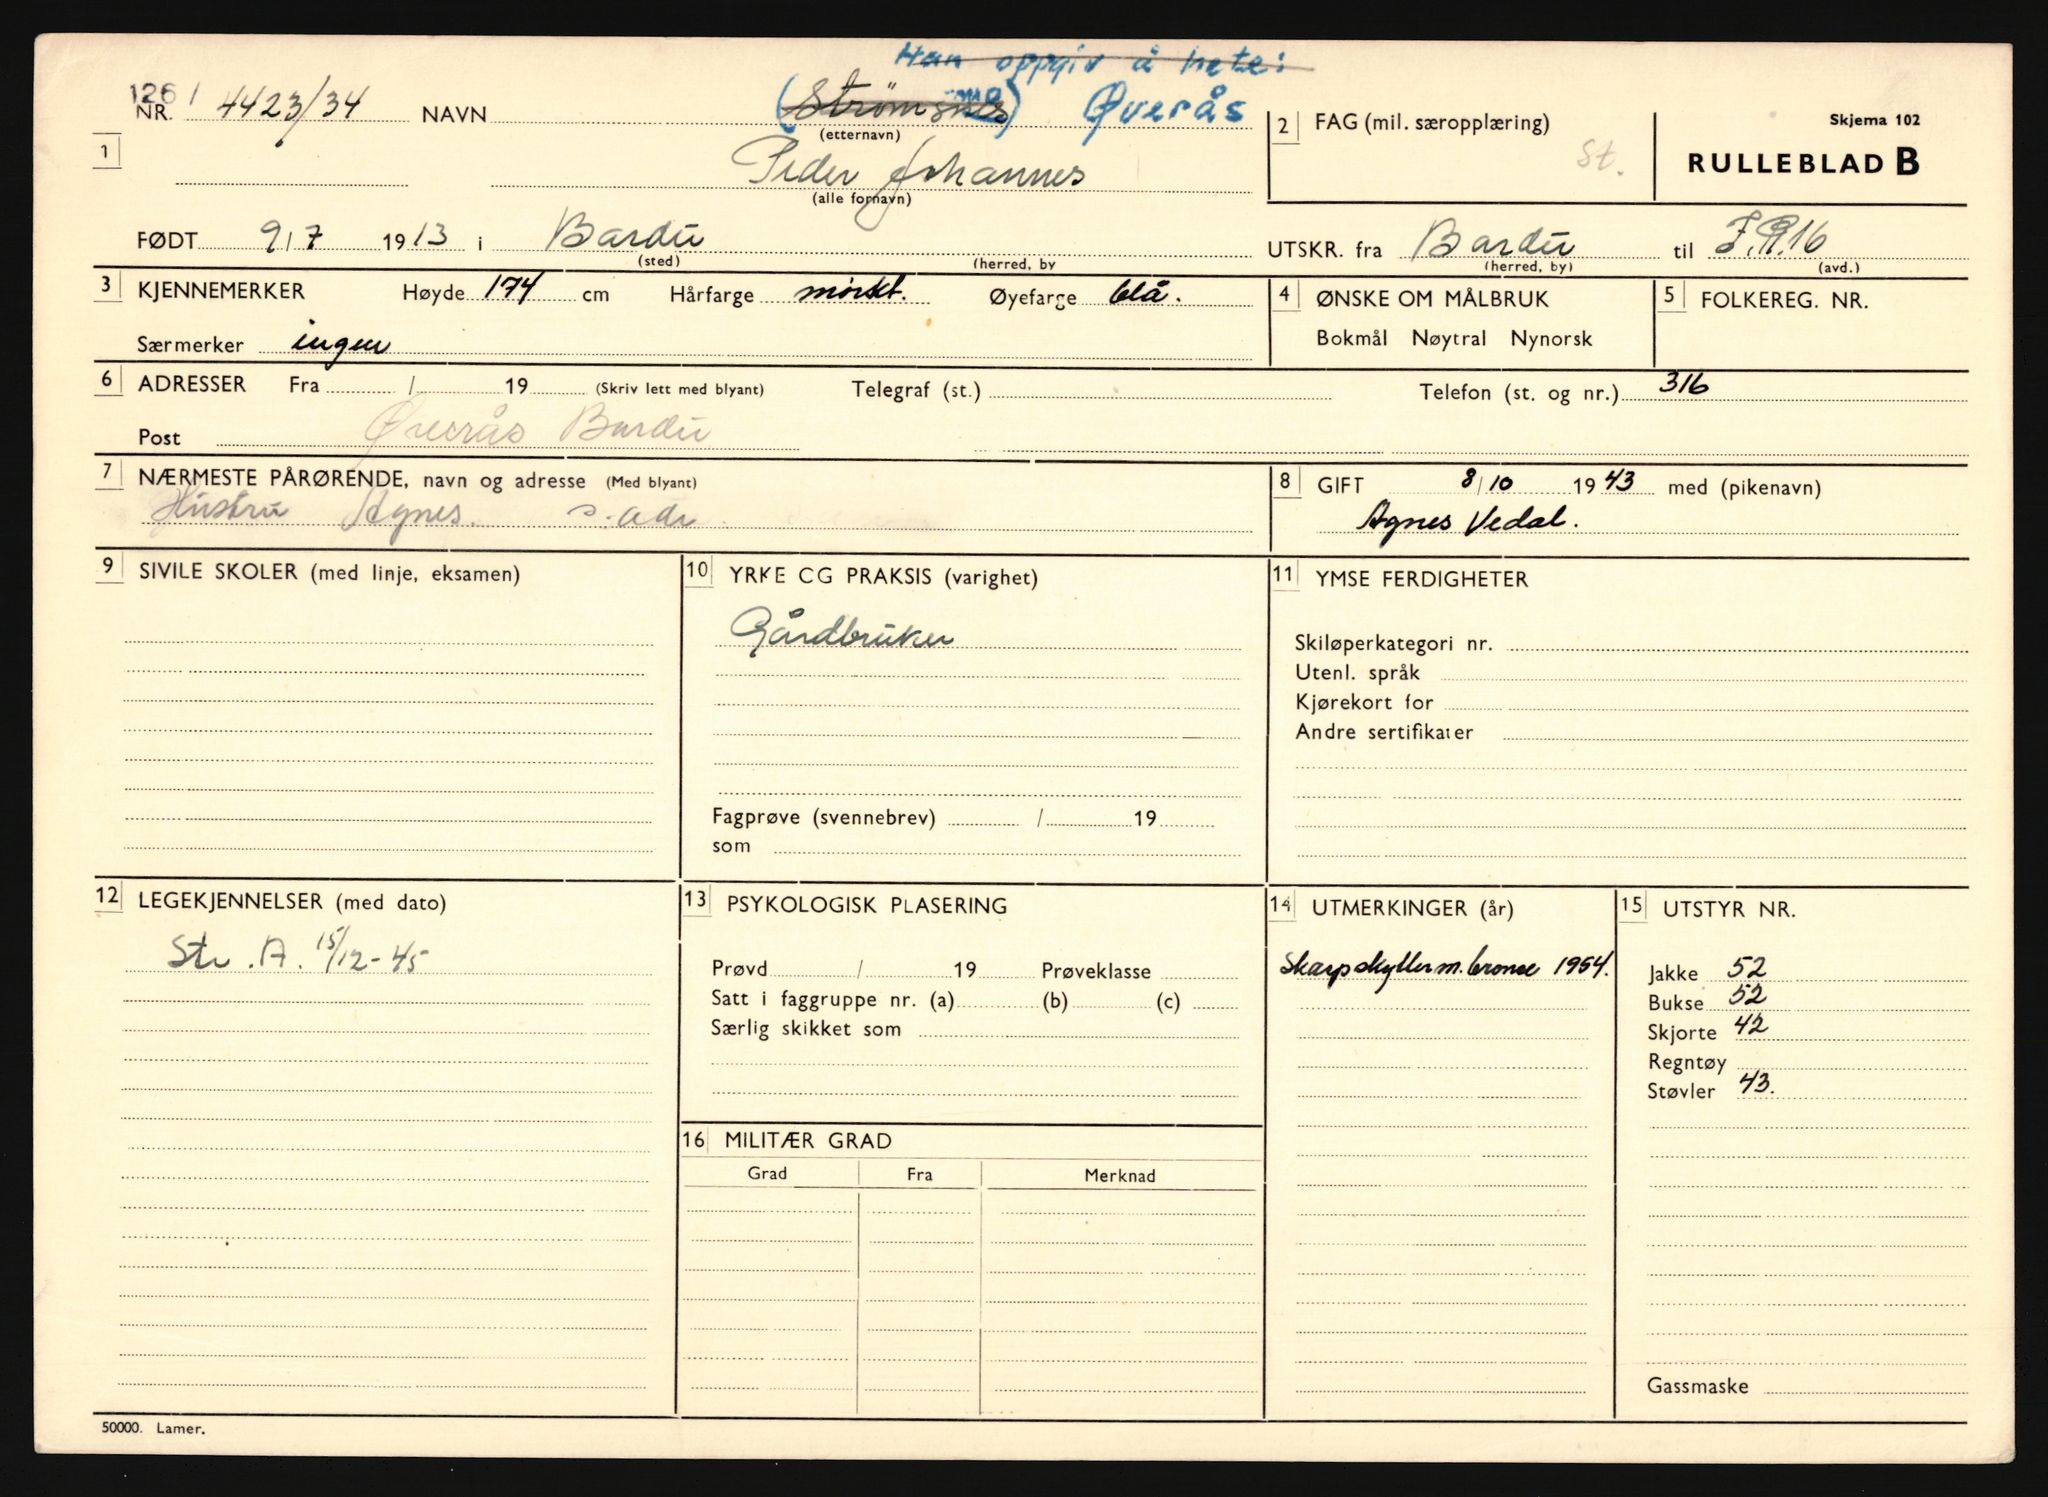 Han oppgiv å hete:
1261
NR. 4423/34 NAVN (Strømsmo) Øverås
(etternavn)
1
Peder Johannes
(alle fornavn)
2 FAG (mil. særopplæring)
St.
Skjema 102
RULLEBLAD B
FØDT 9/7 1913 i Bardu
(sted) (herred, by
UTSKR. fra Bardu til I.R.16
(herred, by) (avd.)
3 KJENNEMERKER Høyde 174 cm Hårfarge mørkt. Øyefarge blå.
Særmerker ingen
4 ØNSKE OM MÅLBRUK
Bokmål Nøytral Nynorsk
5 FOLKEREG. NR.
6 ADRESSER Fra / 19 (Skriv lett med blyant) Telegraf (st.) Telefon (st. og nr.) 316
Post Øverås Bardu
7 NÆRMESTE PÅRØRENDE, navn og adresse (Med blyant)
Hustru Agnes s. adr.
8 GIFT 8/10 1943 med (pikenavn)
Agnes Vedal.
9 SIVILE SKOLER (med linje, eksamen)
10 YRKE CG PRAKSIS (varighet)
Gårdbruker
Fagprøve (svennebrev) / 19
som
11 YMSE FERDIGHETER
Skiløperkategori nr.
Utenl. språk
Kjørekort for
Andre sertifikater
12 LEGEKJENNELSER (med dato)
Str. A. 15/12-45
13 PSYKOLOGISK PLASERING
Prøvd / 19 Prøveklasse
Satt i faggruppe nr. (a) (b) (c)
Særlig skikket som
14 UTMERKINGER (år)
Skarpskytterm. bronse 1954.
15 UTSTYR NR.
Jakke 52
Bukse 52
Skjorte 42
Regntøy
Støvler 43.
Gassmaske
16 MILITÆR GRAD
Grad Fra Merknad
50000. Lamer.